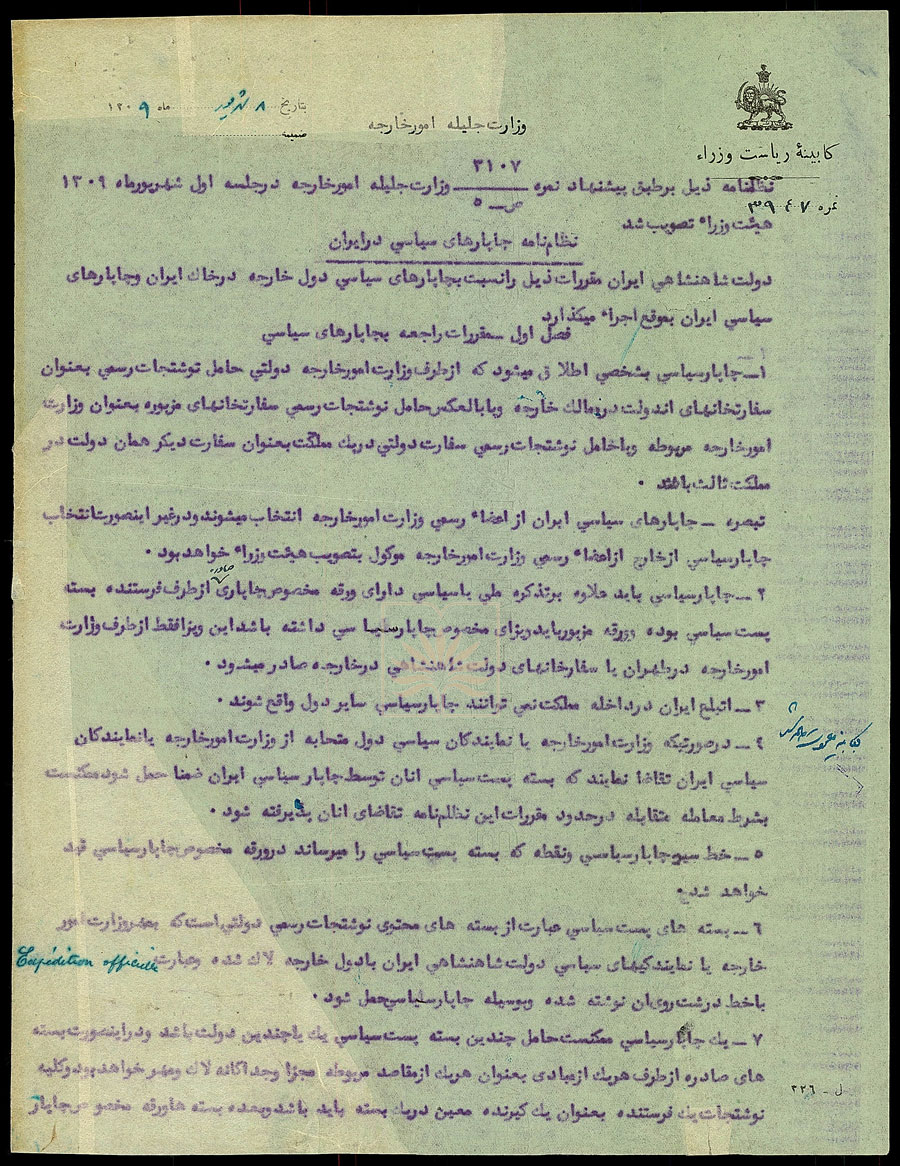 بتاریخ ۸ شهریور ماه ۱۳۰۹
ضمیمه
کابینهٔ ریاست وزراء
نمره ۳۹۴۷
وزارت جلیله امور خارجه
نظامنامه ذیل بر طبق پیشنهاد نمره ۳۱۰۷ وزارت جلیله امور خارجه در جلسه اول شهریور ماه ۱۳۰۹
هیئت وزراء تصویب شد
نظام نامه چاپارهای سیاسی در ایران
دولت شاهنشاهی ایران مقررات ذیل را نسبت بچاپارهای سیاسی دول خارجه در خاك ایران و چاپارهای
سیاسی ایران بموقع اجراء میگذارد
فصل اول ـ مقررات راجعه بچاپارهای سیاسی
۱ـ چاپار سیاسی بشخصی اطلاق میشود که از طرف وزارت امور خارجه دولتی حامل نوشتجات رسمی بعنوان
سفارتخانهای اندولت در ممالك خارجه و یا بالعکس حامل نوشتجات رسمی سفارتخانهای مزبوره بعنوان وزارت
امور خارجه مربوطه و یا حامل نوشتجات رسمی سفارت دولتی در یك مملکت بعنوان سفارت دیگر همان دولت در
مملکت ثالث باشند ۰
تبصره ـ چاپارهای سیاسی ایران از اعضاء رسمی وزارت امور خارجه انتخاب میشوند و در غیر اینصورت انتخاب
چاپار سیاسی از خارج از اعضاء رسمی وزارت امور خارجه موکول بتصویب هیئت وزراء خواهد بود ۰
۲ ـ چاپار سیاسی باید علاوه بر تذکره ملی یا سیاسی دارای ورقه مخصوص چاپاری صادره از طرف فرستنده بسته
پست سیاسی بوده و ورقه مزبور باید ویزای مخصوص چاپار سیاسی داشته باشد این ویزا فقط از طرف وزارت
امور خارجه در طهران یا سفارخانهای دولت شاهنشاهی در خارجه صادر میشود ۰
۳ ـ اتباع ایران در داخله مملکت نمی توانند چاپار سیاسی سایر دول واقع شوند ۰
۴ ـ در صورتیکه وزارت امور خارجه یا نمایندگان سیاسی دول متحابه از وزارت امور خارجه یا نمایندگان
سیاسی ایران تقاضا نمایند که بسته پست سیاسی انان توسط چاپار سیاسی ایران ضمنا حمل شود ممکنست
بشرط معامله متقابله در حدود مقررات این نظامنامه تقاضای انان پذیرفته شود ۰
۵ ـ خط سیر چاپار سیاسی و نقطه که بسته پست سیاسی را میرساند در ورقه مخصوص چاپار سیاسی قید
خواهد شد
۶ ـ بسته های پست سیاسی عبارت از بسته های محتوی نوشتجات رسمی دولتی است که بمهر وزارت امور
خارجه یا نمایندگیهای سیاسی دولت شاهنشاهی ایران یا دول خارجه لاك شده و عبارت Expédition officielle
با خط درشت روی ان نوشته شده و بوسیله چاپار سیاسی حمل شود ۰
۷ ـ یك چاپار سیاسی ممکنست حامل چندین بسته پست سیاسی یك یا چندین دولت باشد و در اینصورت بسته
های صادره از طرف هر یك از مبادی بعنوان هر یك از مقاصد مربوطه مجزا و جداگانه لاك و مهر خواهد بود و کلیه
نوشتجات یك فرستنده بعنوان یك گیرنده معین در یك بسته باید باشد و بعده بسته ها ورقه مخصوص چاپار
ل ـ ۲۲۶